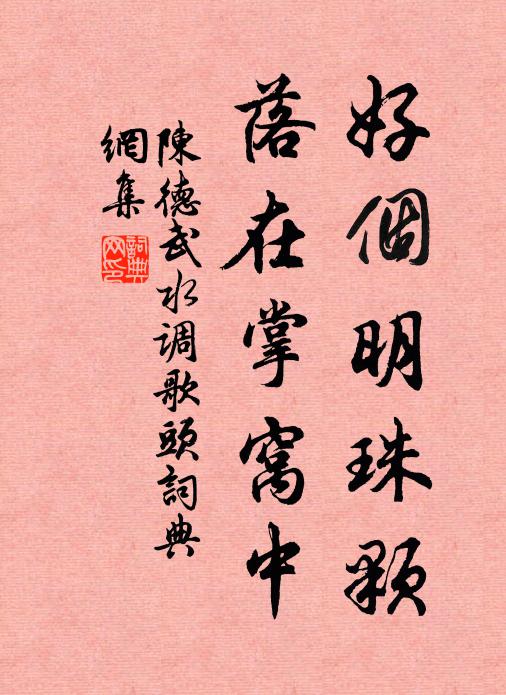 好個明珠顆
落在掌窩中
陳德武水调歌頭詞典
網集
詞典
网印